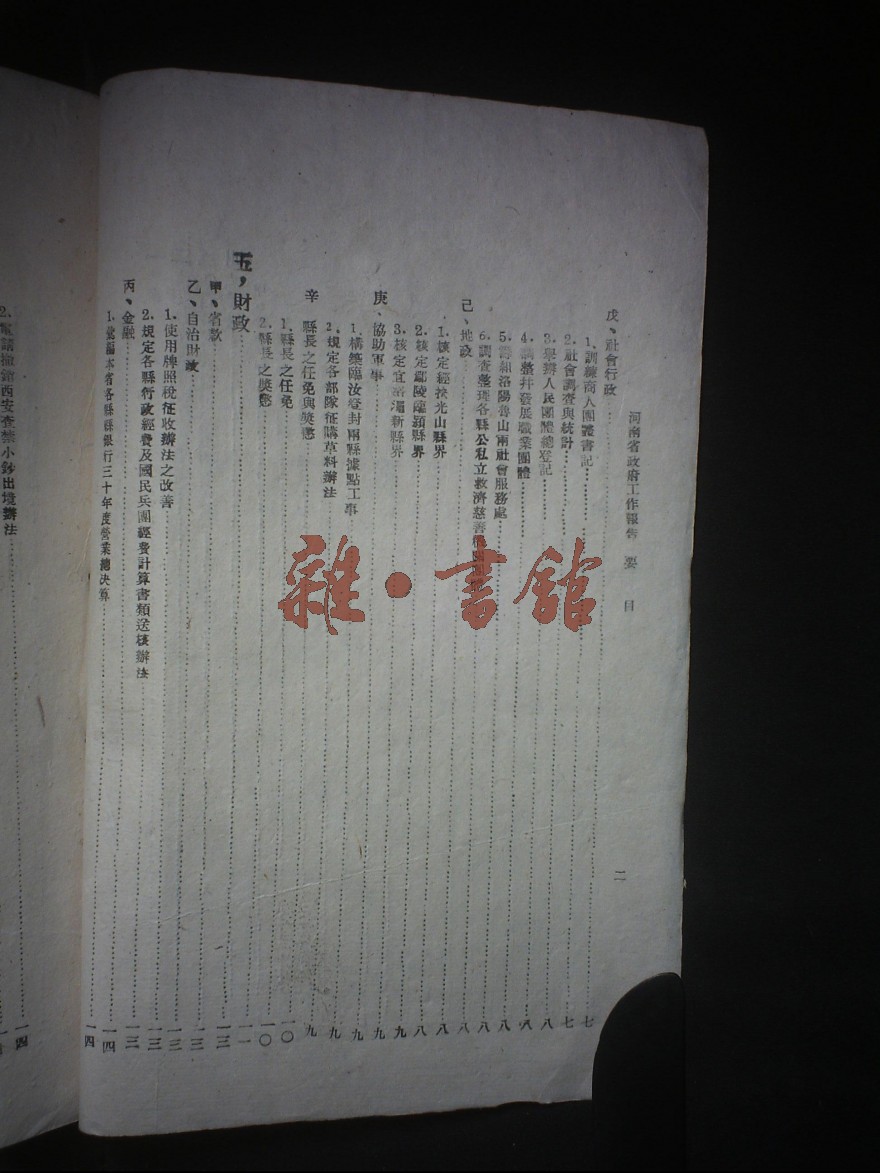 河南省政府工作報告 要目 二
戊、社會行政 七
1.訓練商人團體書記 七
2.社會調查與統計 八
3.舉辦人民團體總登記 八
4.調整并發展職業團體 八
5.洛陽魯山兩社會服務處 八
6.調查整理各縣公私立救濟慈善 八
己、地政 八
1.核定經扶光山縣界 八
2.核定鄢陵臨潁縣界 九
3.核定宜洛澠新縣界 九
庚、協助軍事 九
1.構築臨汝登封兩縣據點工事 九
2.規定各部隊征購草料辦法 九
辛 縣長之任免與獎懲 九
1.縣長之任免 一〇
2.縣長之獎懲 一〇
五，財政 一一
甲、省款 一三
乙、自治財政 一三
1.使用牌照稅征收辦法之改善 一三
2.規定各縣行政經費及國民兵團經費計算書類送核辦法 一三
丙、金融 一三
1.彙編本省各縣縣銀行三十年度營業總決算 一四
一四
2.電請 西安查禁小鈔出境辦法 一四
雜·書館